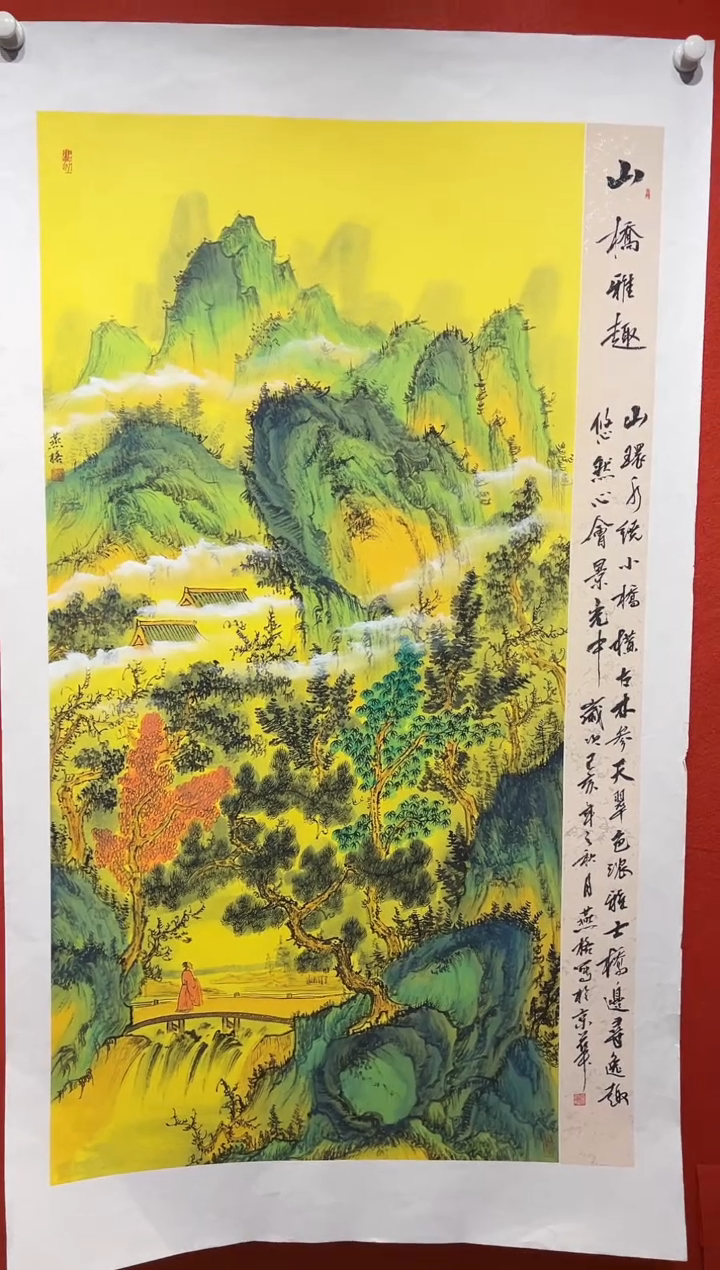 山橋雅趣
山環水繞小橋橫古木參天翠色濃雅士橋邊尋逸趣
悠然心會景光中 歲次己亥年之秋月燕格写於京華
燕格